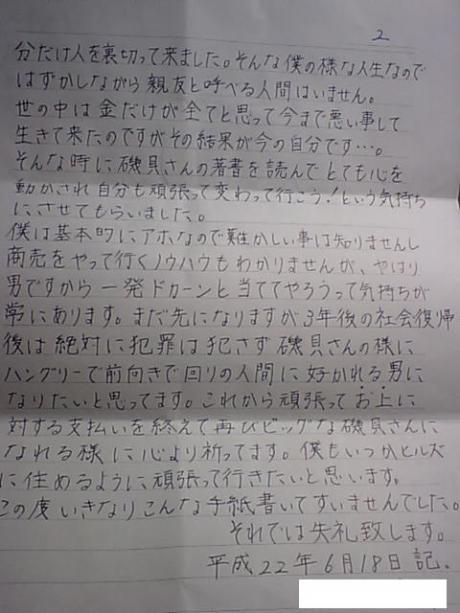 2
分だけ人を裏切って来ました。そんな僕の様な人生なので
はずかしながら親友と呼べる人間はいません。
世の中は金だけが全てと思って今まで悪い事して
生きて来たのですがその結果が今の自分です…。
そんな時に磯貝さんの著書を読んでとても心を
動かされ自分も頑張って変わって行こう!という気持ち
にさせてもらいました。
僕は基本的にアホなので難かしい事は知りませんし
商売をやって行くノウハウもわかりませんが、やはり
男ですから一発ドカーンと当ててやろうって気持ちが
常にあります。まだ先になりますが3年後の社会復帰
後は絶対に犯罪は犯さず磯貝さんの様に
ハングリーで前向きで回りの人間に好かれる男に
なりたいと思ってます。これから頑張ってお上に
対する支払いを終えて再びビッグな磯貝さんに
なれる様に心より祈ってます。僕もいつかヒルズ
に住めるように頑張って行きたいと思います。
この度いきなりこんな手紙書いてすいませんでした。
それでは失礼致します。
平成22年6月18日 記.